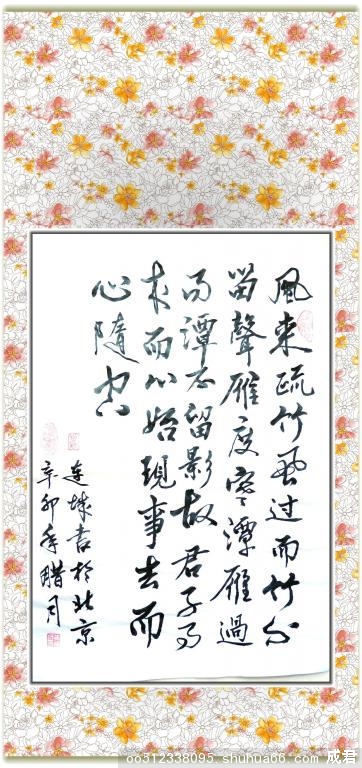 風来疏竹風过而竹不
留聲雁度寒潭雁過
而潭不留影故君子事
来而心始現事去而
心隨空
连城书於北京
辛卯年腊月
oo512338095 shuhua66.com 成君